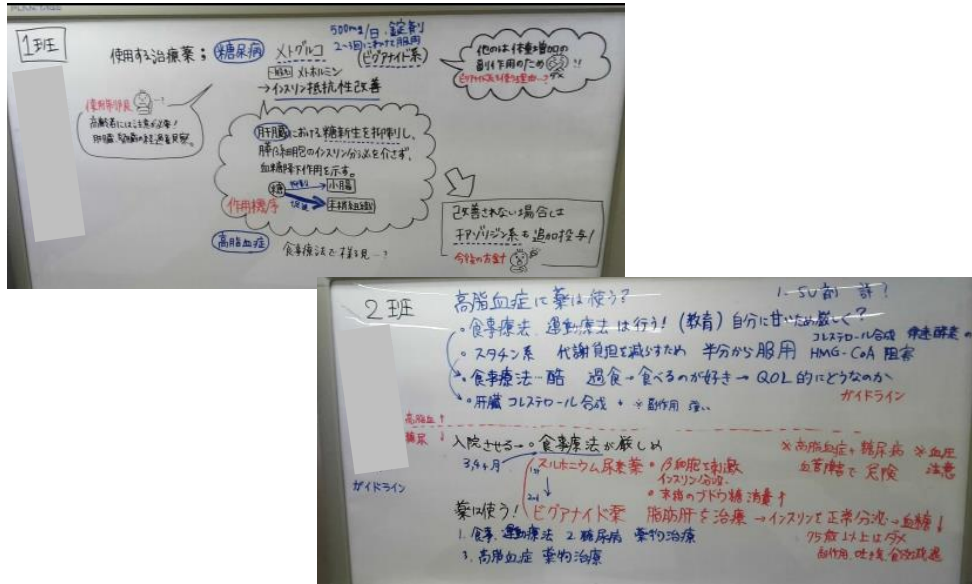 1班
使用する治療薬；糖尿病 メトグルコ
500mg/日、錠剤
2~3回にわけて服用
(ビグアナイド系)
一般名 メトホルミン
→インスリン抵抗性改善
他のは体重増加の
副作用のため
ダメ
高齢者には注意が必要!
肝臓における糖新生を抑制し、
膵β細胞のインスリン分泌を介さず、
血糖降下作用を示す。
糖 抑制 小腸
促進 末梢組織
作用機序
改善されない場合は
チアゾリジン系も追加投与!
今後の方針
高脂血症 食事療法で様子見…?
2班
高脂血症に薬は使う?
1. SU剤 許?
・食事療法、運動療法は行う!(教育) 自分に甘いため厳しく?
コレステロール合成 律速酵素の
・スタチン系 代謝負担を減らすため 半分から服用 HMG-CoA 阻害
・食事療法…酷 過食→食べるのが好き→QOL的にどうなのか
ガイドライン
・肝臓コレステロール合成 + ※副作用 強い
高脂血↑
糖尿↓
入院させる→・食事療法が厳しめ
3,4ヶ月
※高脂血症+糖尿病 ※血圧
血管障害で危険 注意
ガイドライン
1st スルホニウム尿素薬 ・β細胞を刺激
インスリン分泌
・末梢のブドウ糖消費↑
薬は使う! 2nd ビグアナイド薬 脂肪肝を治療→インスリンを正常分泌→血糖↓
1. 食事、運動療法 2. 糖尿病 薬物治療
75歳以上はダメ
3. 高脂血症 薬物治療
副作用、吐き気、食欲減退